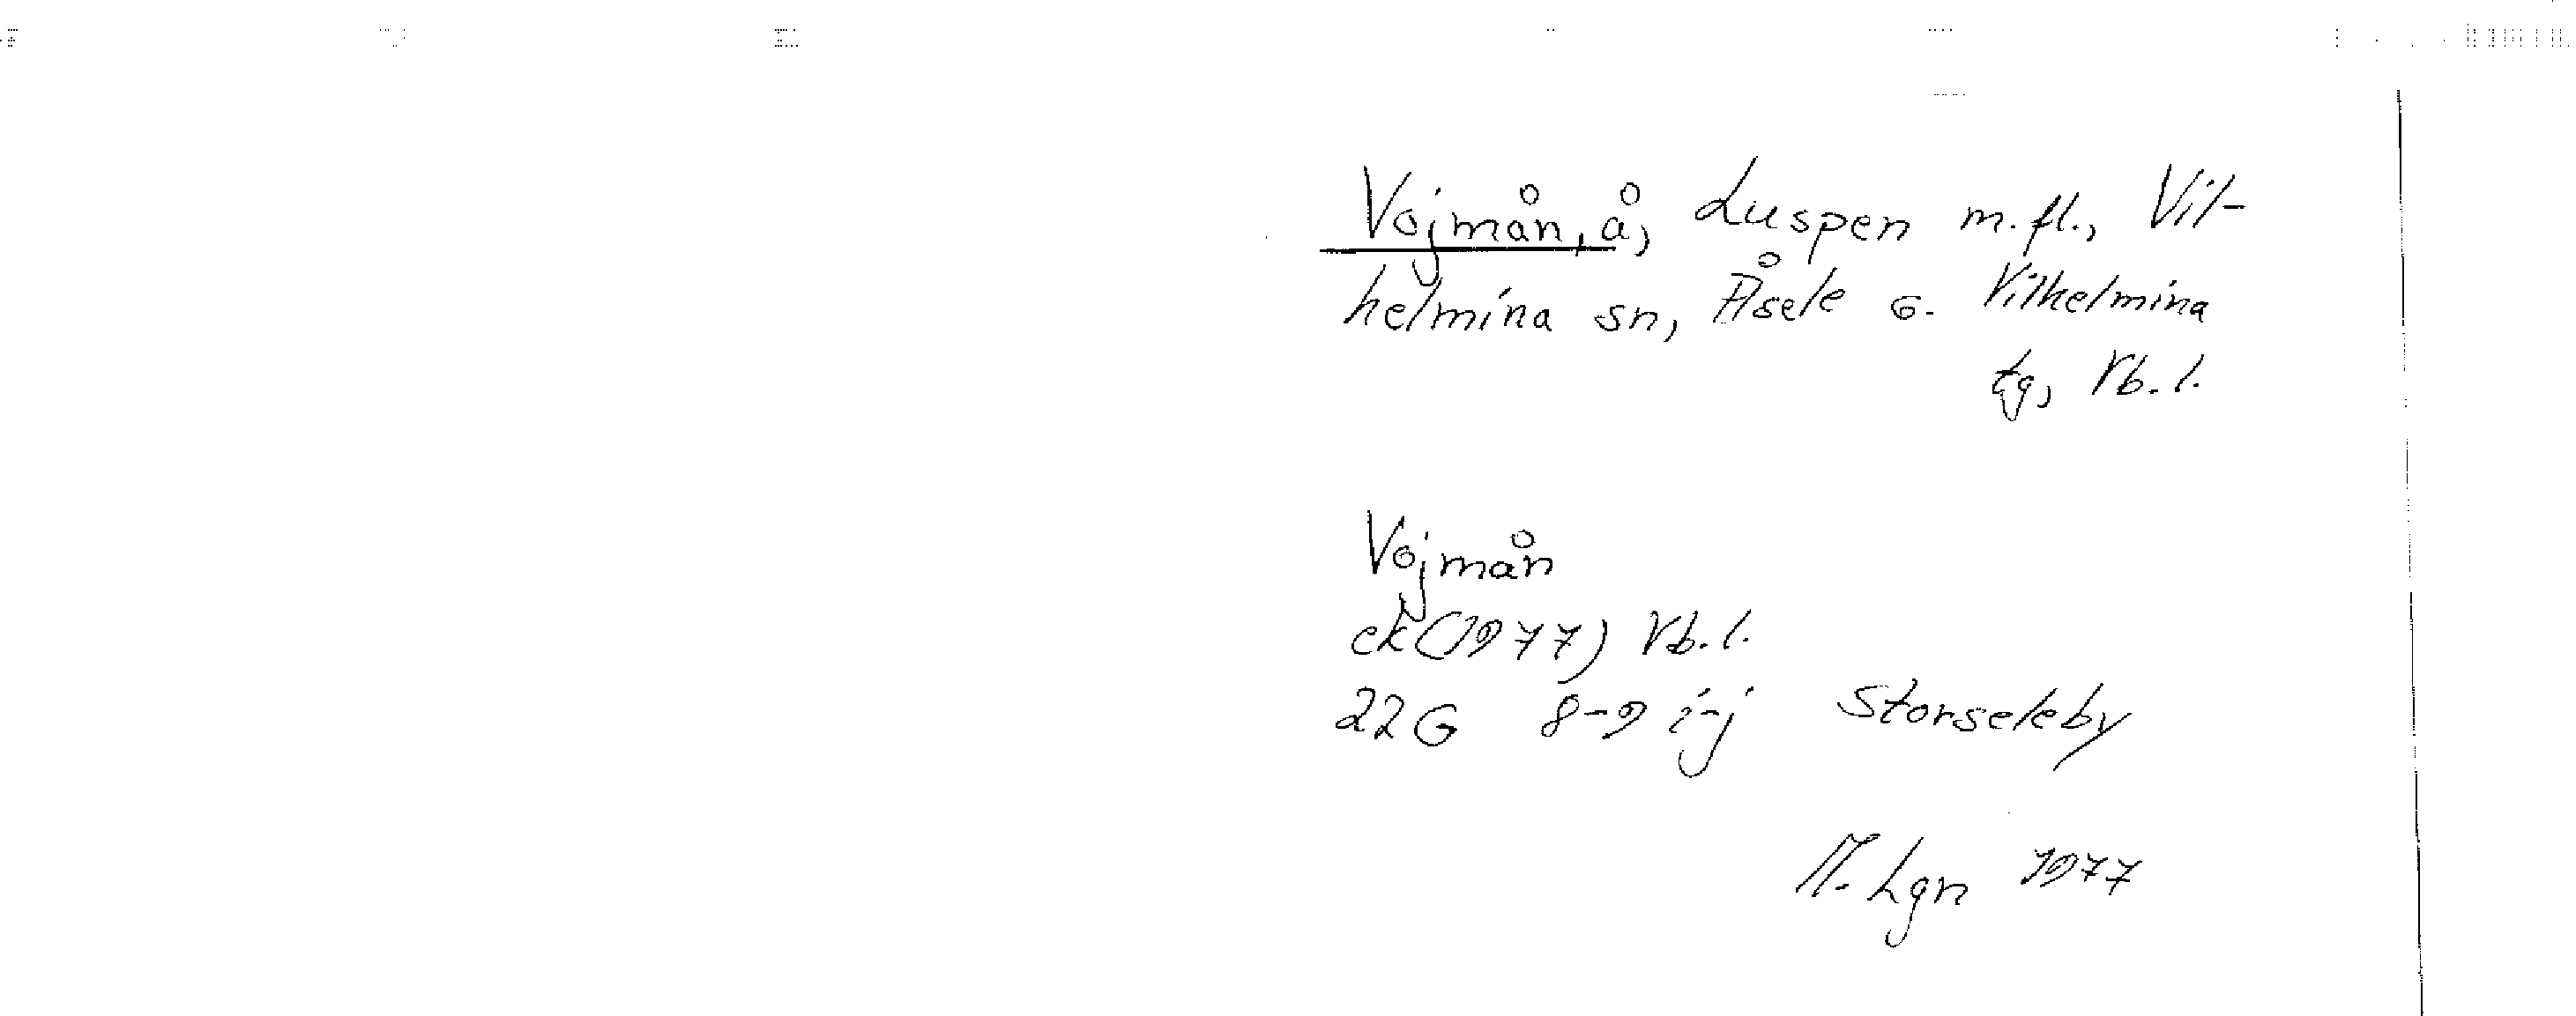 Vojmån, å, Luspen m.fl., Vil-
helmina sn, Åsele o. Vilhelmina
tg, Vb.l.
Vojmån
ek (1977) Vb.l.
22 G 8-9 i-j Storseleby
M. Lgn 1977